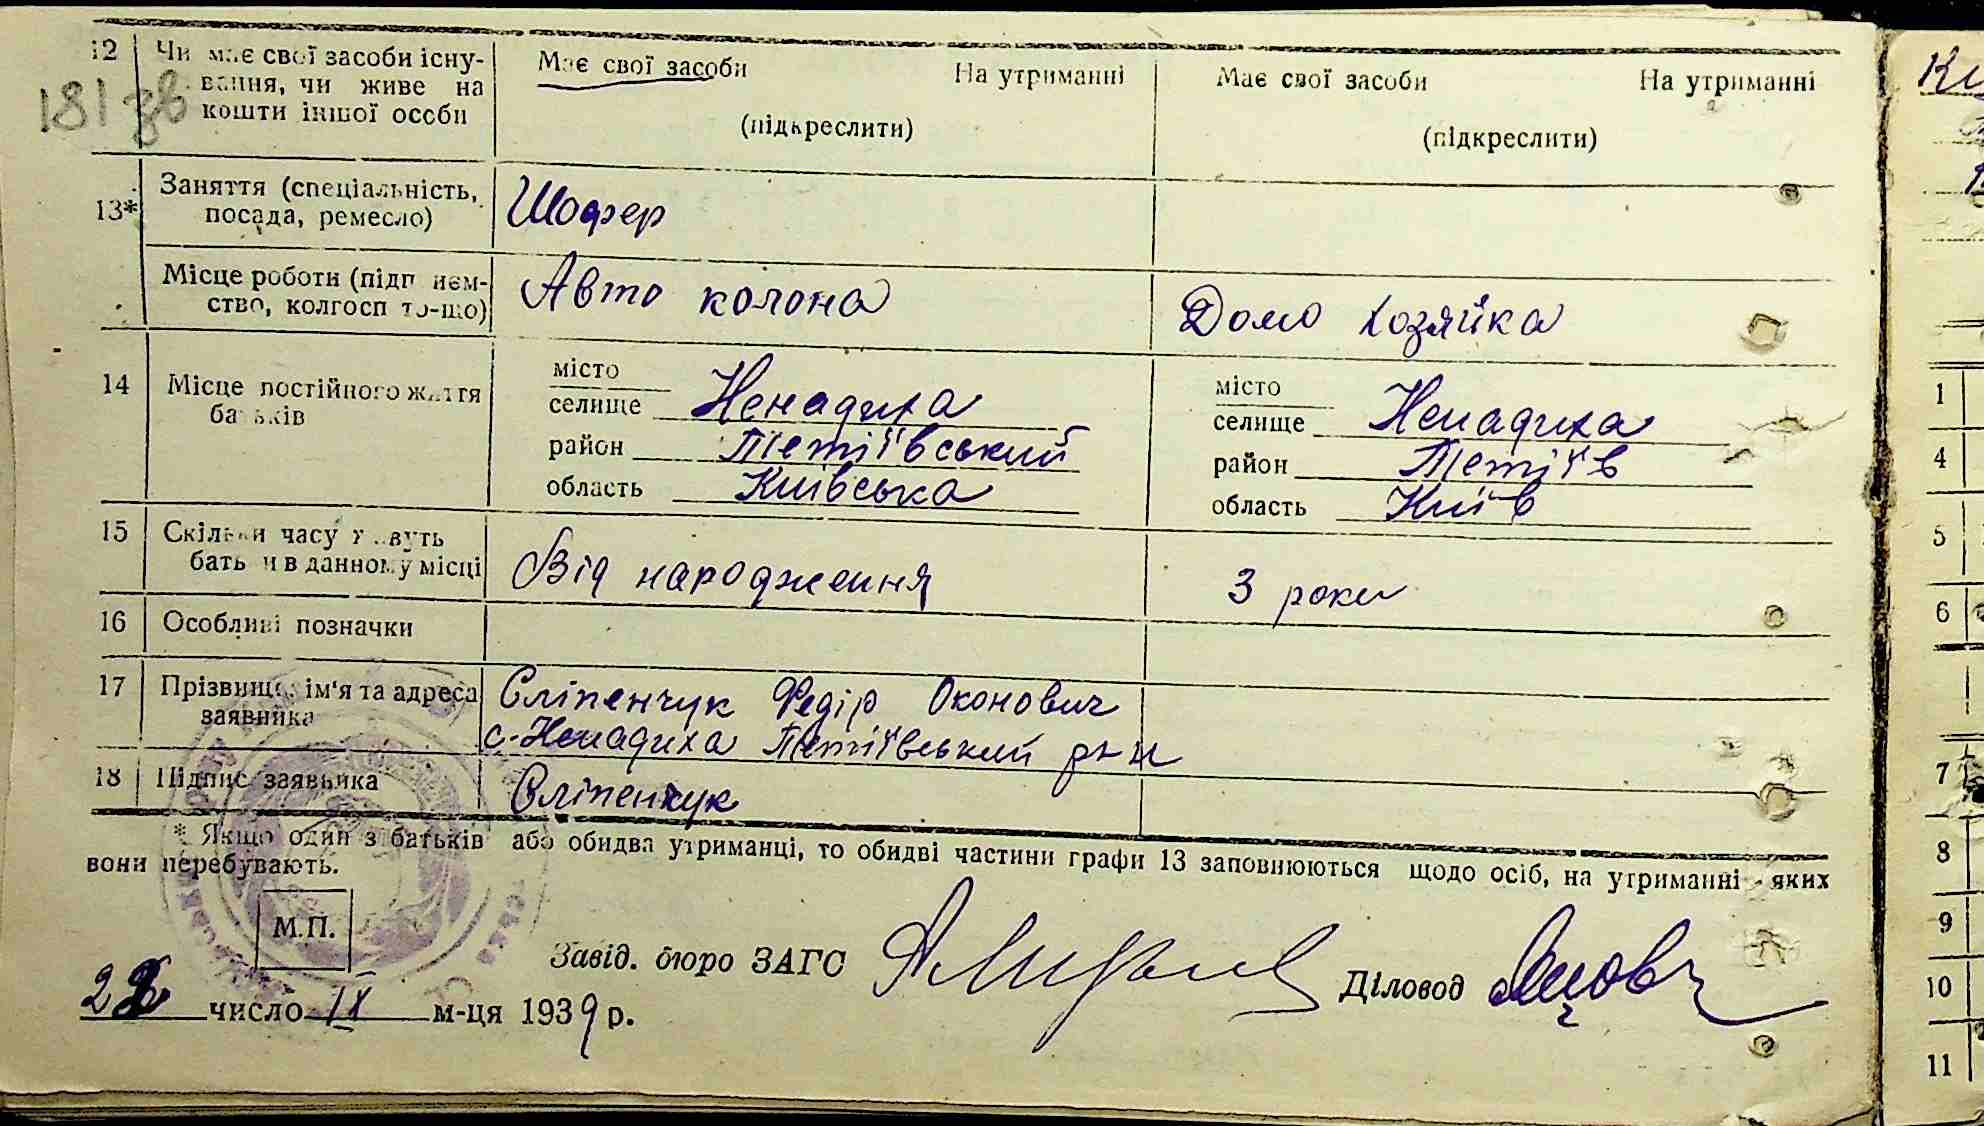 12 Чи має свої засоби існу- Має свої засоби На утриманні Має свої засоби На утриманні
181 зв вання, чи живе на
кошти іншої особи (підкреслити) (підкреслити)
13* Заняття (спеціальність, Шофер
посада, ремесло)
Місце роботи (підприєм- Авто колона Домо хозяйка
ство, колгосп то-що)
14 Місце постійного життя батьків
місто місто
селище Ненадиха селище Ненадиха
район Тетіївський район Тетіїв
область Київська область Київ
15 Скільки часу живуть Від народження 3 роки
батьки в данному місці
16 Особливі позначки
17 Прізвище, ім'я та адреса Сліпенчук Федір Оконович
заявника с. Ненадиха Тетіївський р-н
18 Підпис заявника Сліпенчук
* Якщо один з батьків або обидва утриманці, то обидві частини графи 13 заповнюються щодо осіб, на утриманні яких
вони перебувають.
М.П.
Завід. бюро ЗАГС Діловод
число IX м-ця 1939 р.
1
4
5
6
7
8
9
10
11